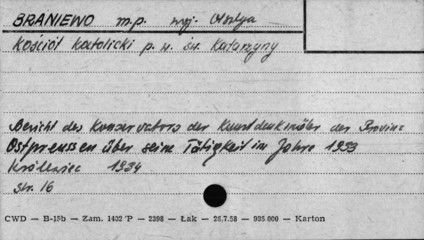 BRANIEWO m.p. woj. Olsztyn
Kościół katolicki p.w. św. Katarzyny
Bericht des Konservators der Kunstdenkmäler der Provinz
Ostpreussen über seine Tätigkeit im Jahre 1933
Królewiec 1934
str. 16
CWD — B-15b — Zam. 1432 P — 2398 — Łak — 26.7.58 — 935 000 — Karton